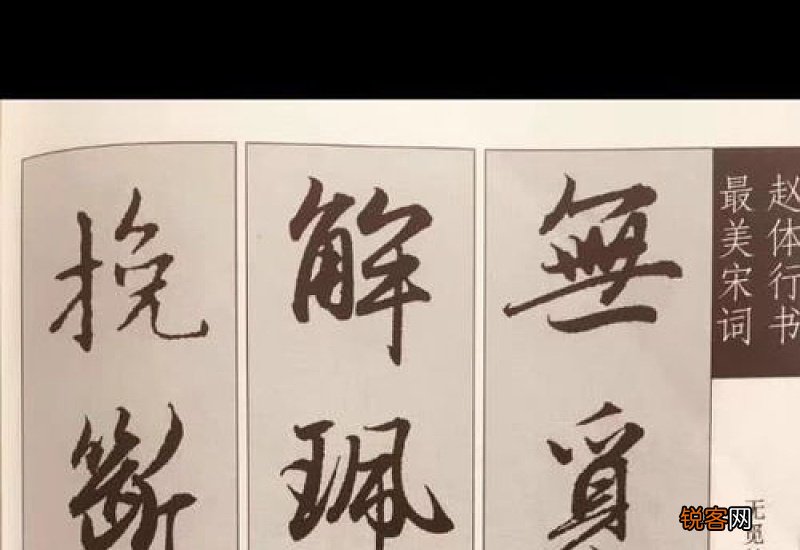 赵体行书
最美宋词
無覓
解珮
挽斷
无觅
锐客网